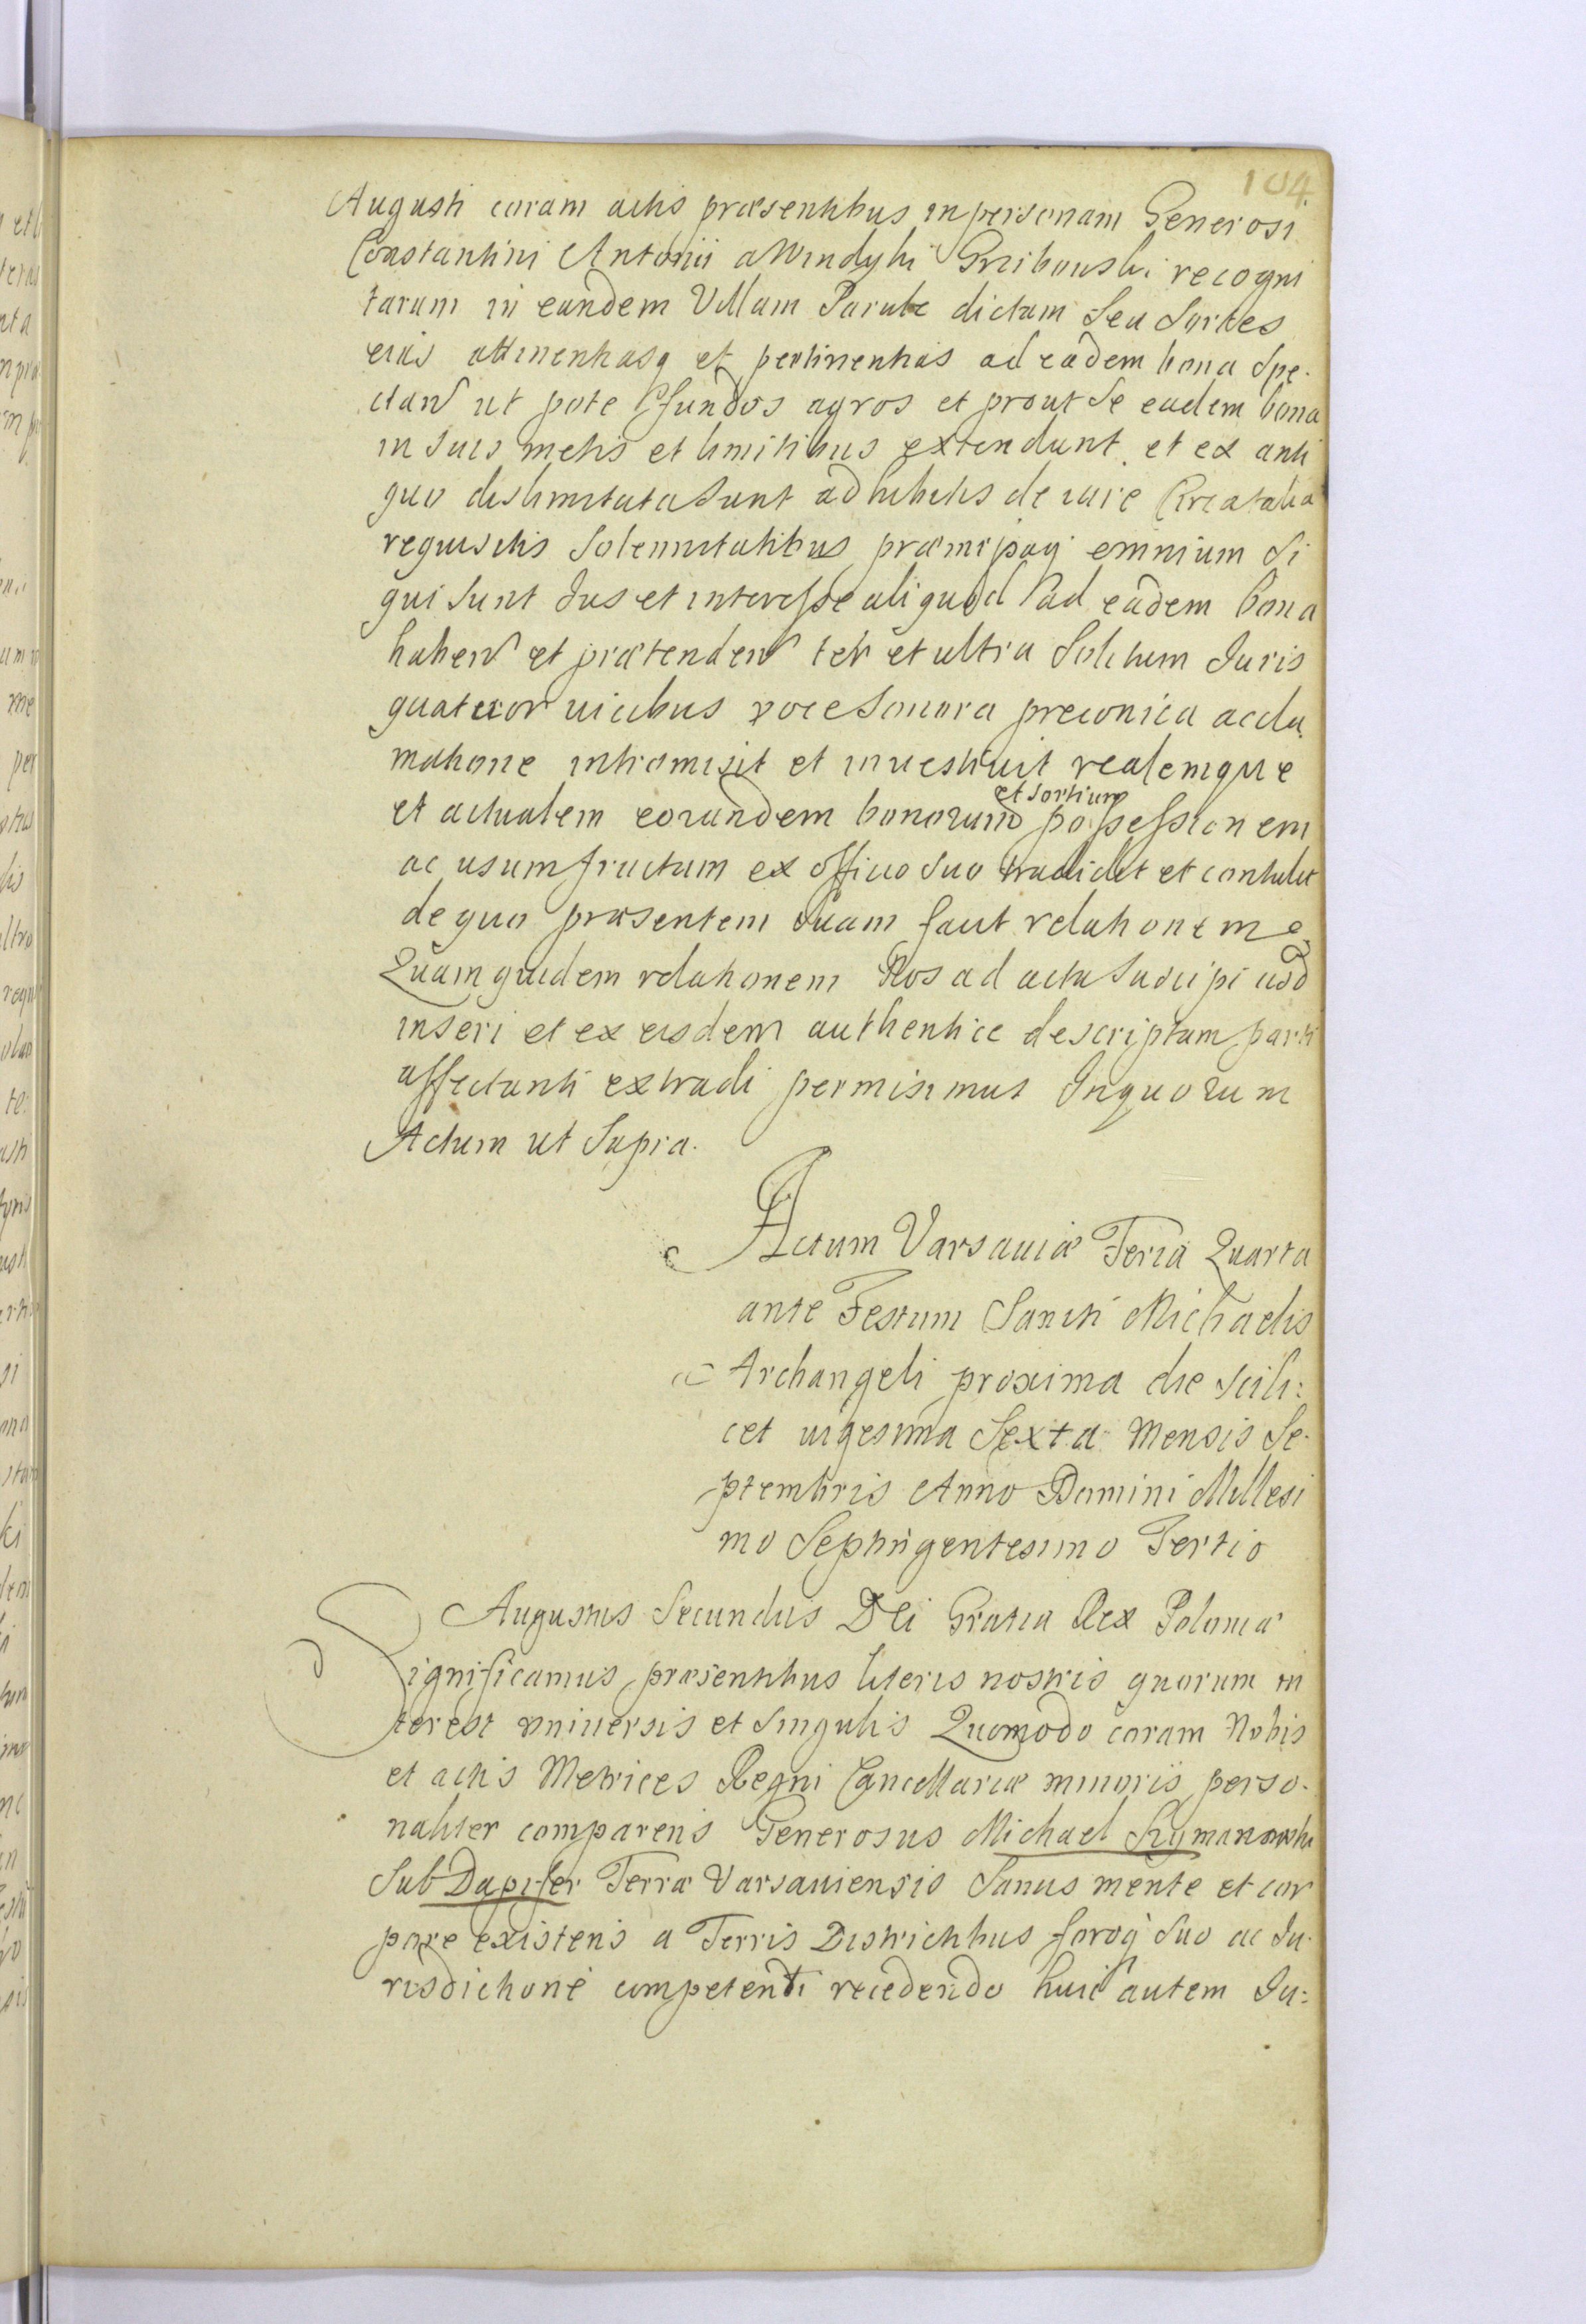 104
Augusti coram actis præsentibus in personam Generosi
Constantini Antonii a Windyki Grzibouski recogni
tarum in eandem Villam Parule dictam Seu Sortes
eius attinentiasq et pertinentias ad eadem bona Spe-
ctan ut pote fundos agros et prout Se eadem bona
in Suis metis et limitibus extendunt et ex anti
quo dislimitata Sunt adhibitis de iure Circa talia
requisitis Solennitatibus præmissaq omnium Si
qui Sunt Jus et interesse aliquod ad eadem bona
haben et prætenden ter et ultra Solitum Juris
quatuor uicibus voce Sonora preconica accla
matione intromisit et inuestiuit realemque
et sortium
et actualem eorundem bonorum possessionem
ac usumfructum ex officio Suo tradidit et contulit
de quo præsentem Suam facit relationem
Quam quidem relationem Nos ad acta Suscipi
inseri et ex eisdem authentice descriptam parti
affectanti extradi permisimus Inquorum
Actum ut Supra.
Actum Varsauiæ Feria Quarta
ante Festum Sancti Michaelis
Archangeli proxima die Scili:
cet uigesima Sexta Mensis Se-
ptembris Anno Domini Millesi
mo Septingentesimo Tertio
Augustus Secundus Dei Gratia Rex Poloniæ
Significamus præsentibus literis nostris quorum in
terest vniuersis et Singulis Quomodo coram Nobis
et actis Metrices Regni Cancellariæ minoris perso-
naliter comparens Generosus Michael Rymanowski
SubDapifer Terræ Varsauiensis Sanus mente et cor
pore existens a Terris Districtibus foroq Suo ac Ju-
risdictione competenti recedendo huic autem Ju: